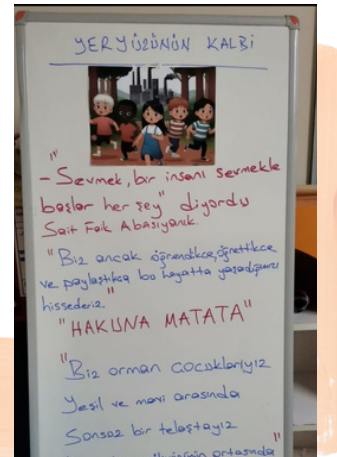 YERYÜZÜNÜN KALBİ
"
- Sevmek, bir insanı sevmekle
başlar her şey" diyordu
Sait Faik Abasıyanık.
"Biz ancak öğrendikçe, öğrettikçe
ve paylaştıkça bu hayatta yaşadığımızı
hissederiz."
"HAKUNA MATATA"
"Biz orman çocuklarıyız
Yeşil ve mavi arasında
Sonsuz bir telaştayız
ortasında"